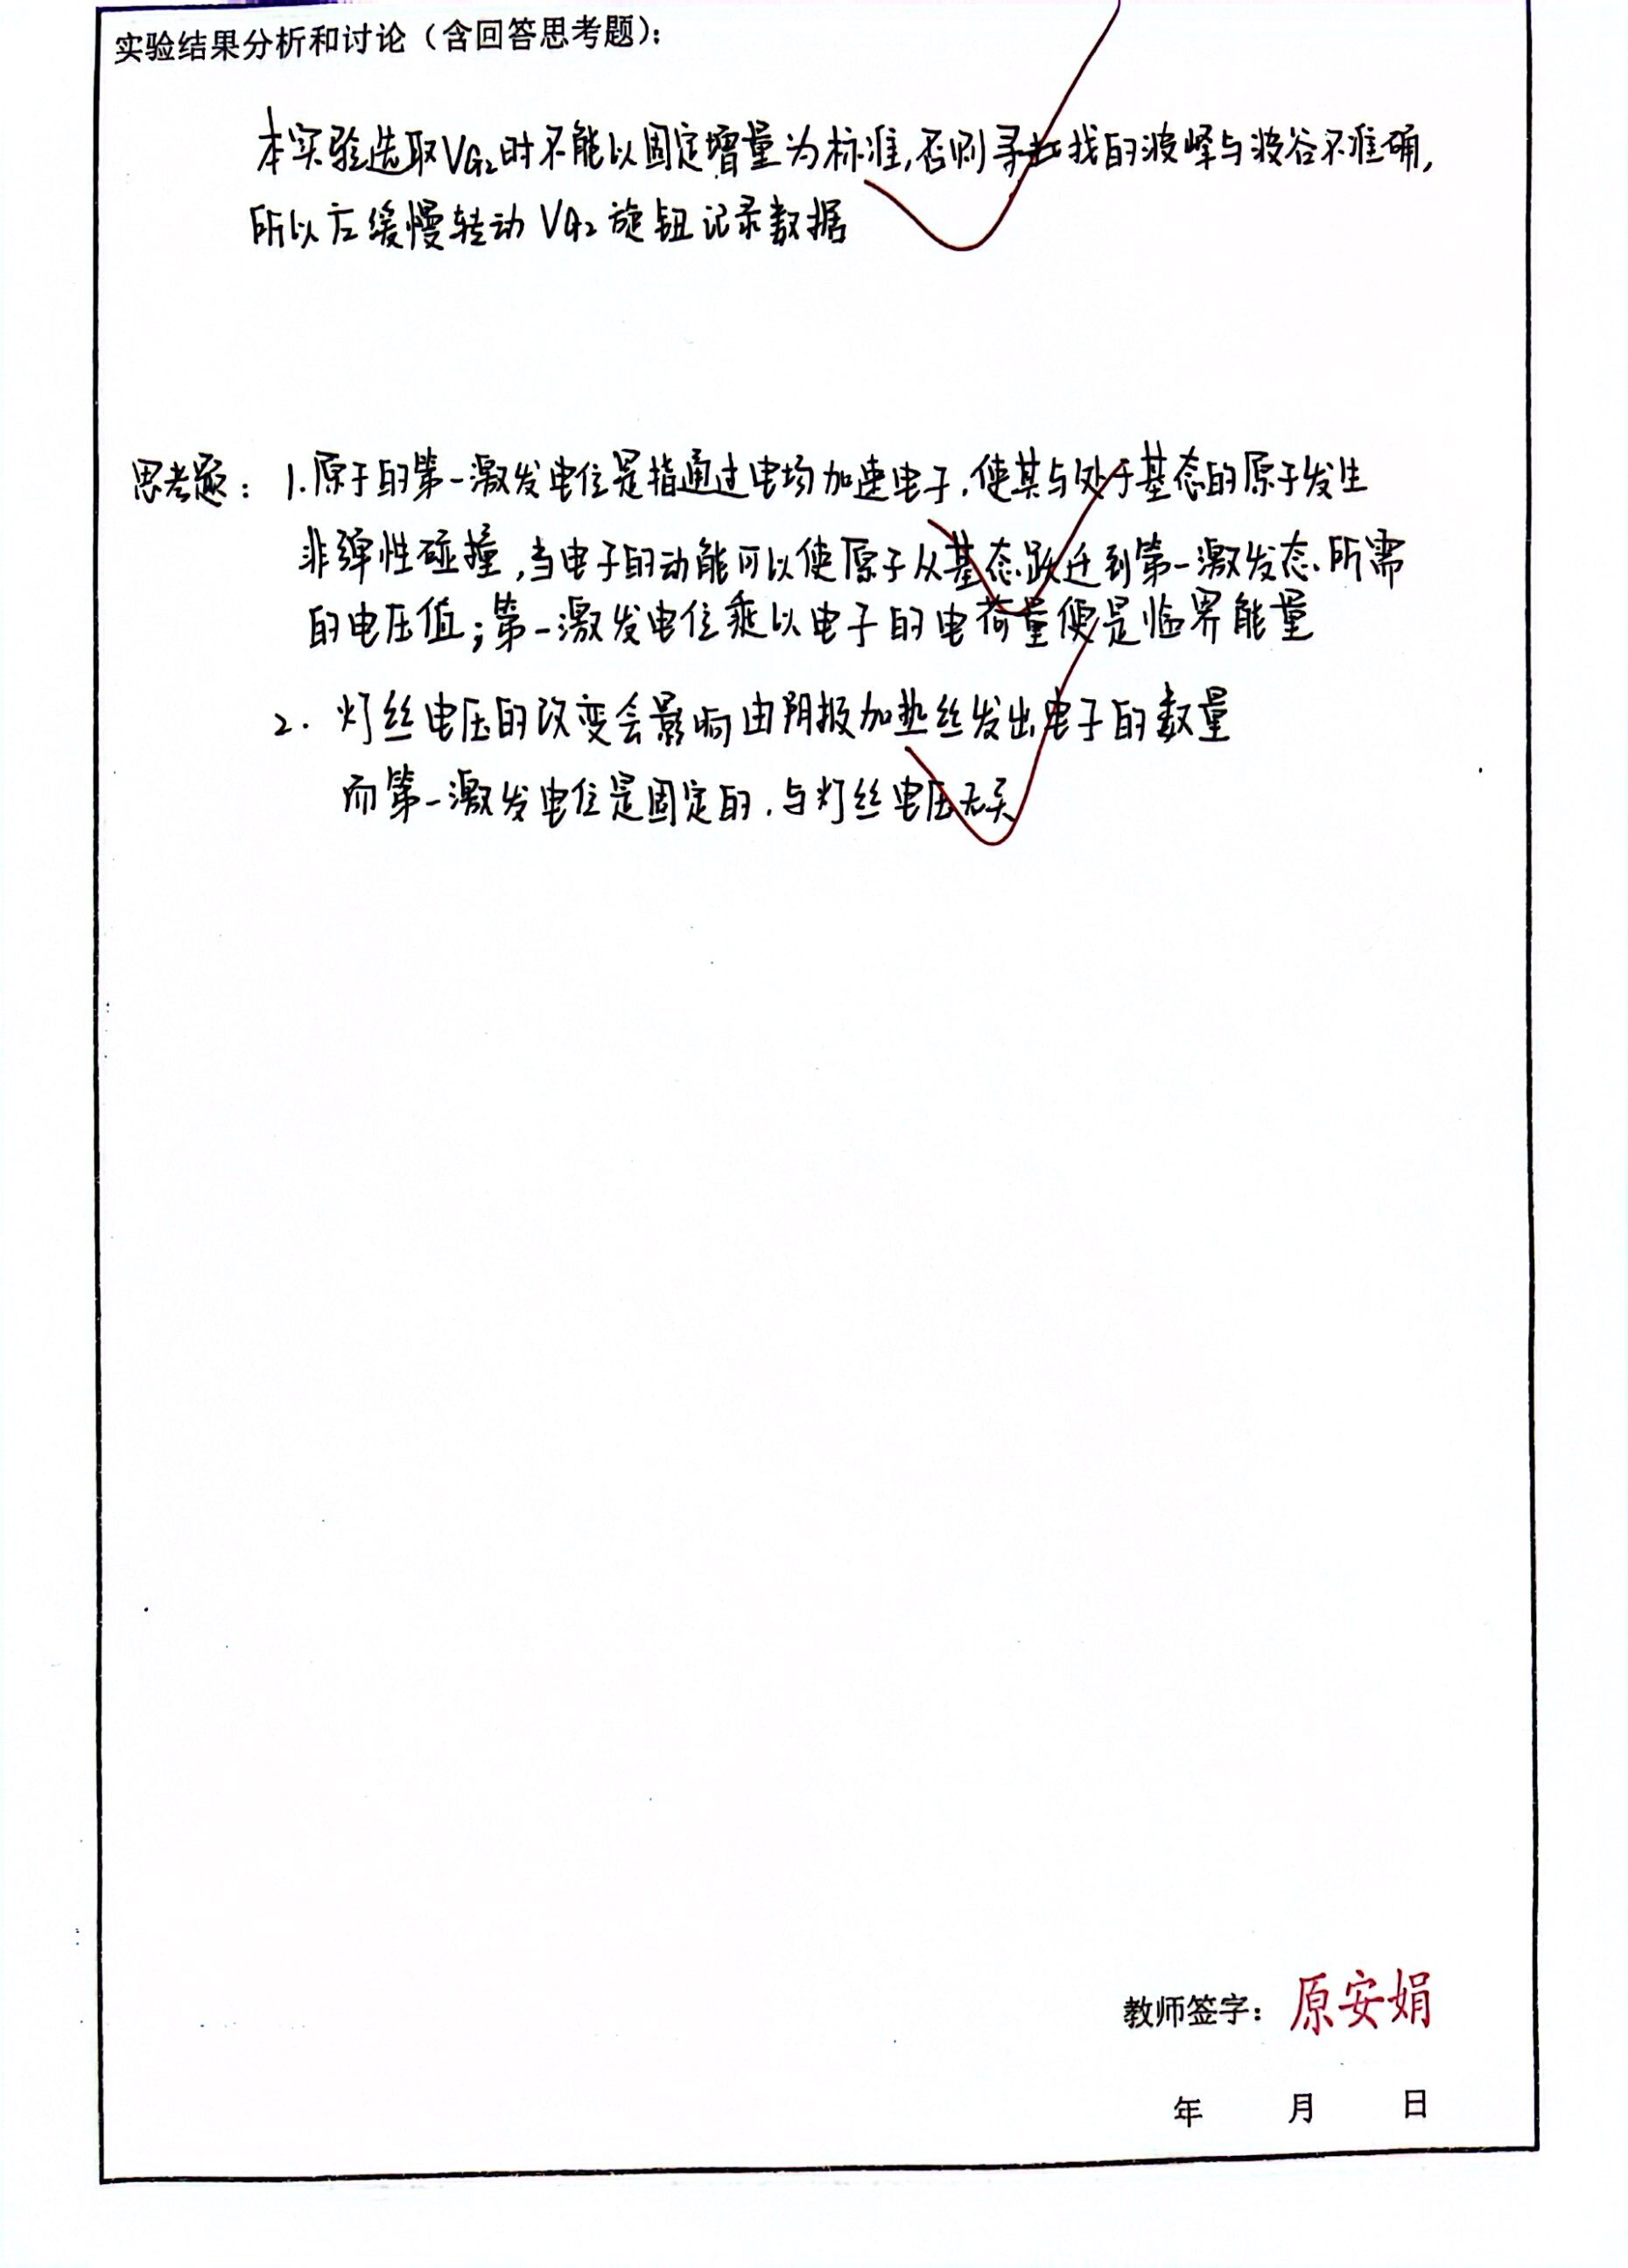 实验结果分析和讨论（含回答思考题）：
本实验选取VG2时不能以固定增量为标准,否则寻找的波峰与波谷不准确,
所以应缓慢转动VG2旋钮记录数据
思考题：1.原子的第一激发电位是指通过电场加速电子,使其与处于基态的原子发生
非弹性碰撞,当电子的动能可以使原子从基态跃迁到第一激发态所需
的电压值;第一激发电位乘以电子的电荷量便是临界能量
2. 灯丝电压的改变会影响由阴极加热丝发出电子的数量
而第一激发电位是固定的,与灯丝电压无关
教师签字：原安娟
年 月 日